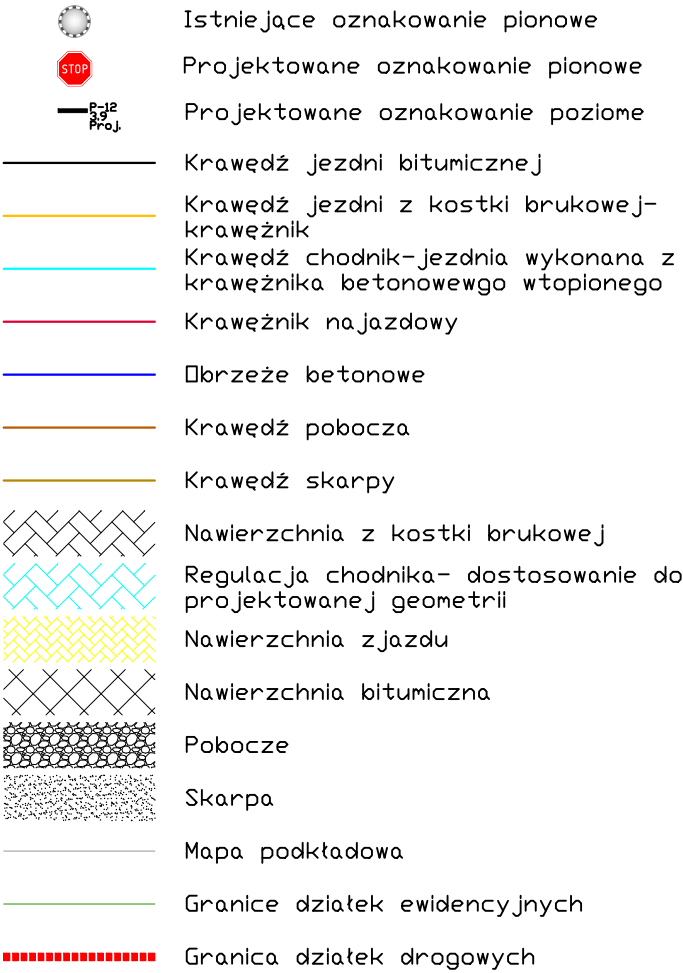 Istniejące oznakowanie pionowe
STOP
Projektowane oznakowanie pionowe
P-12
3.9
Proj.
Projektowane oznakowanie poziome
Krawędź jezdni bitumicznej
Krawędź jezdni z kostki brukowej-
krawężnik
Krawędź chodnik-jezdnia wykonana z
krawężnika betonowewgo wtopionego
Krawężnik najazdowy
Obrzeże betonowe
Krawędź pobocza
Krawędź skarpy
Nawierzchnia z kostki brukowej
Regulacja chodnika- dostosowanie do
projektowanej geometrii
Nawierzchnia zjazdu
Nawierzchnia bitumiczna
Pobocze
Skarpa
Mapa podkładowa
Granice działek ewidencyjnych
Granica działek drogowych